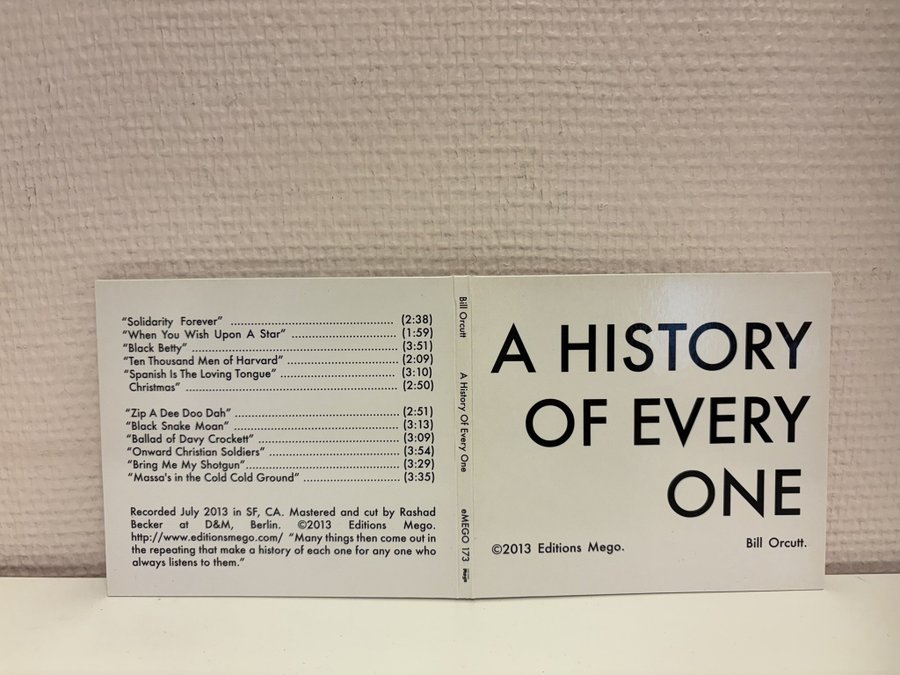 "Solidarity Forever" (2:38)
"When You Wish Upon A Star" (1:59)
"Black Betty" (3:51)
"Ten Thousand Men of Harvard" (2:09)
"Spanish Is The Loving Tongue" (3:10)
Christmas" (2:50)
"Zip A Dee Doo Dah" (2:51)
"Black Snake Moan" (3:13)
"Ballad of Davy Crockett" (3:09)
"Onward Christian Soldiers" (3:54)
"Bring Me My Shotgun" (3:29)
"Massa's in the Cold Cold Ground" (3:35)
Recorded July 2013 in SF, CA. Mastered and cut by Rashad
Becker at D&M, Berlin. ©2013 Editions Mego.
http://www.editionsmego.com/ "Many things then come out in
the repeating that make a history of each one for any one who
always listens to them."
Bill Orcutt A History Of Every One eMEGO 173
A HISTORY
OF EVERY
ONE
©2013 Editions Mego.
Bill Orcutt.